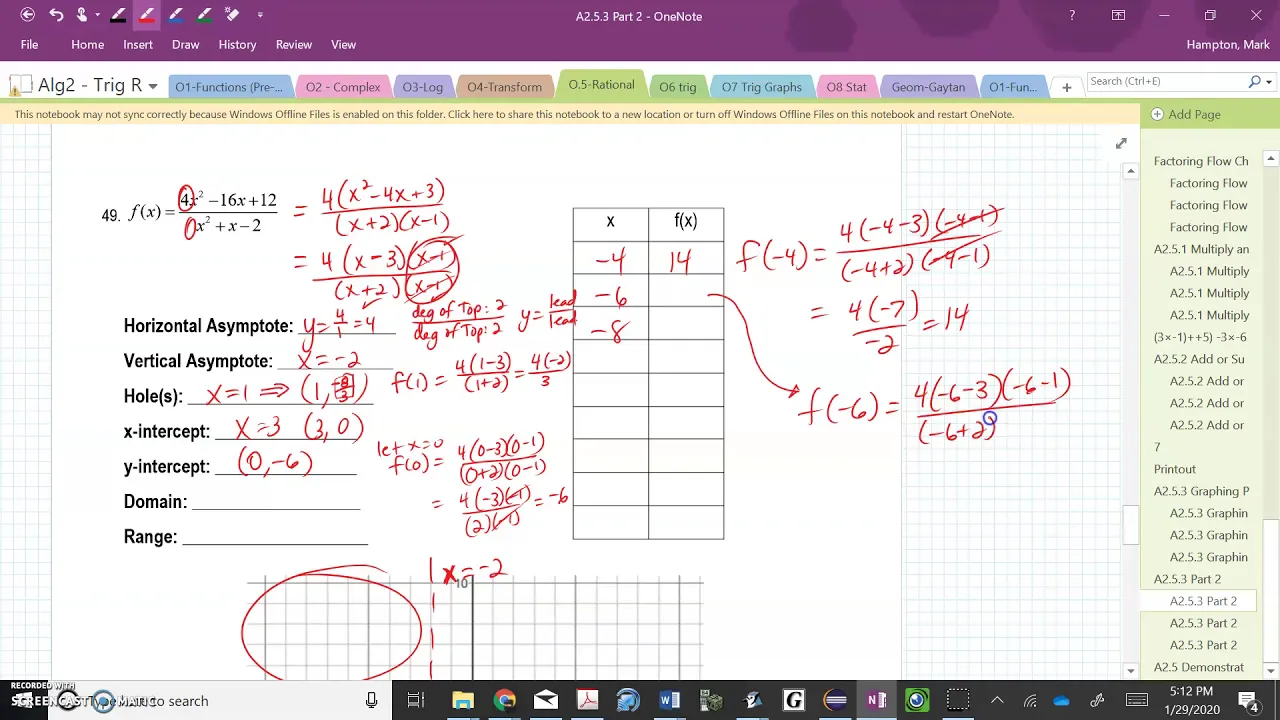 A2.5.3 Part 2 - OneNote
Hampton, Mark
File Home Insert Draw History Review View
Alg2 - Trig R
O1-Functions (Pre-... O2 - Complex O3-Log O4-Transform O.5-Rational O6 trig O7 Trig Graphs O8 Stat Geom-Gaytan O1-Fun...
Search (Ctrl+E)
This notebook may not sync correctly because Windows Offline Files is enabled on this folder. Click here to share this notebook to a new location or turn off Windows Offline Files on this notebook and restart OneNote.
Add Page
Factoring Flow Ch
Factoring Flow
Factoring Flow
Factoring Flow
A2.5.1 Multiply an
A2.5.1 Multiply
A2.5.1 Multiply
A2.5.1 Multiply
(3×-1)++5) -3×-6
A2.5.2 Add or Su
A2.5.2 Add or
A2.5.2 Add or
A2.5.2 Add or
7
Printout
A2.5.3 Graphing P
A2.5.3 Graphin
A2.5.3 Graphin
A2.5.3 Graphin
A2.5.3 Part 2
A2.5.3 Part 2
A2.5.3 Part 2
A2.5.3 Part 2
A2.5 Demonstrat
49. f(x) = (4x² - 16x + 12)/(x² + x - 2) = 4(x² - 4x + 3)/((x+2)(x-1))
= 4(x-3)(x-1)/((x+2)(x-1))
Horizontal Asymptote: y = 4/1 = 4
deg of Top: 2 / deg of Top: 2 y = lead/lead
Vertical Asymptote: x = -2
Hole(s): x = 1 ⇒ (1, -8/3)
f(1) = 4(1-3)/(1+2) = 4(-2)/3
x-intercept: x = 3 (3, 0)
y-intercept: (0, -6)
let x = 0
f(0) = 4(0-3)(0-1)/((0+2)(0-1))
= 4(-3)(-1)/((2)(-1)) = -6
Domain:
Range:
x f(x)
-4 14
-6
-8
f(-4) = 4(-4-3)(-4-1)/((-4+2)(-4-1))
= 4(-7)/-2 = 14
f(-6) = 4(-6-3)(-6-1)/(-6+2)
x = -2
10
RECORDED WITH
SCREENCAST MATIC
Type here to search
5:12 PM
1/29/2020
4